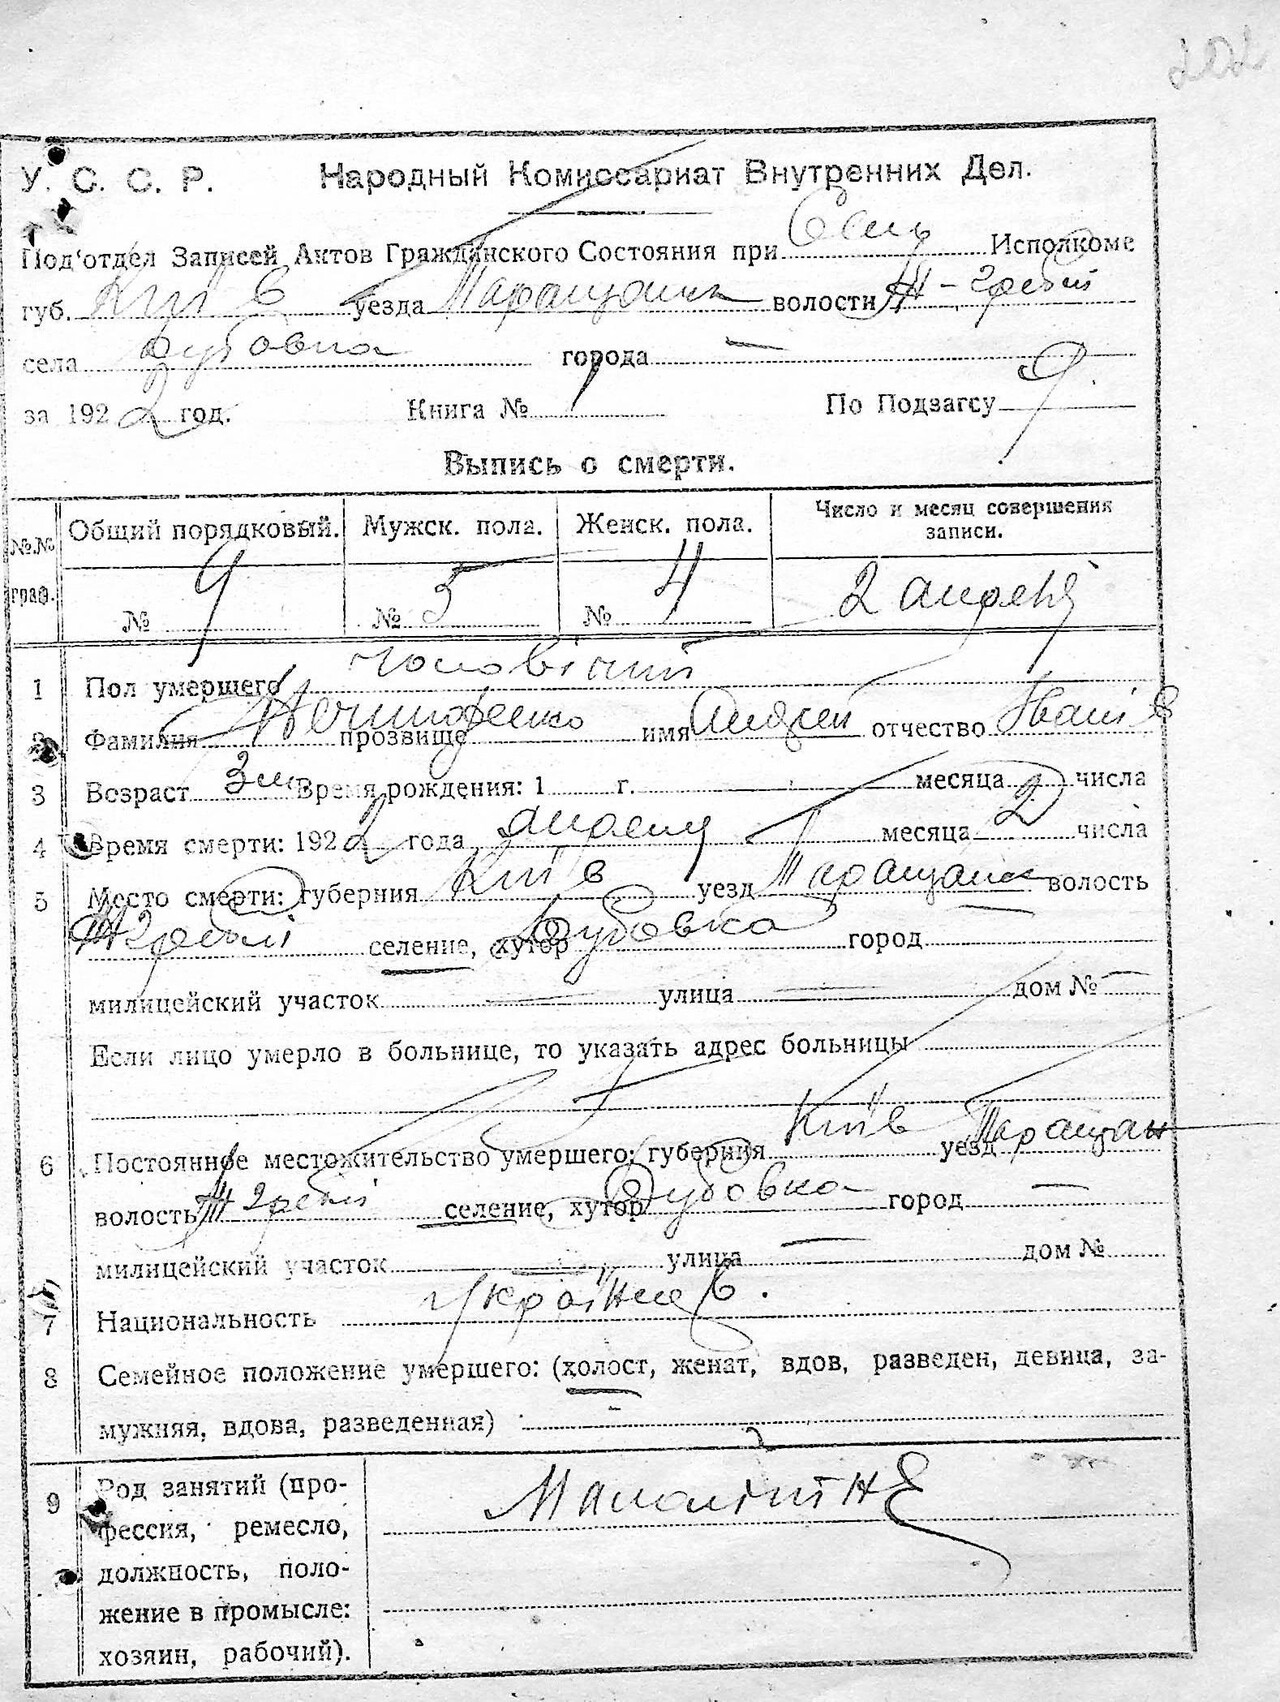 202
У. С. С. Р. Народный Комиссариат Внутренних Дел.
Под'отдел Записей Актов Гражданского Состояния при Исполкоме
губ. Київ уезда Таращанск волости Ж-Гребл
села Дубовка города —
за 1922 год. Книга № 1 По Подзагсу 9
Выпись о смерти.
№№ граф. Общий порядковый. Мужск. пола. Женск. пола. Число и месяц совершения записи.
№ 9 № 5 № 4 2 апреля
1 Пол умершего чоловічий
2 Фамилия прозвище имя Андрей отчество Іванів
3 Возраст 3 Время рождения: 1 г. месяца числа
4 Время смерти: 1922 года апреля месяца 2 числа
5 Место смерти: губерния Київ уезд Таращанск волость
селение, хутор Дубовка город
милицейский участок — улица — дом № —
Если лицо умерло в больнице, то указать адрес больницы
6 Постоянное местожительство умершего: губерния Київ уезд Таращан
волость селение, хутор Дубовка город —
милицейский участок — улица — дом №
7 Национальность Українець.
8 Семейное положение умершего: (холост, женат, вдов, разведен, девица, за-
мужняя, вдова, разведенная) -
9 Род занятий (про-
фессия, ремесло,
должность, поло-
жение в промысле:
хозяин, рабочий).
Малолітнє